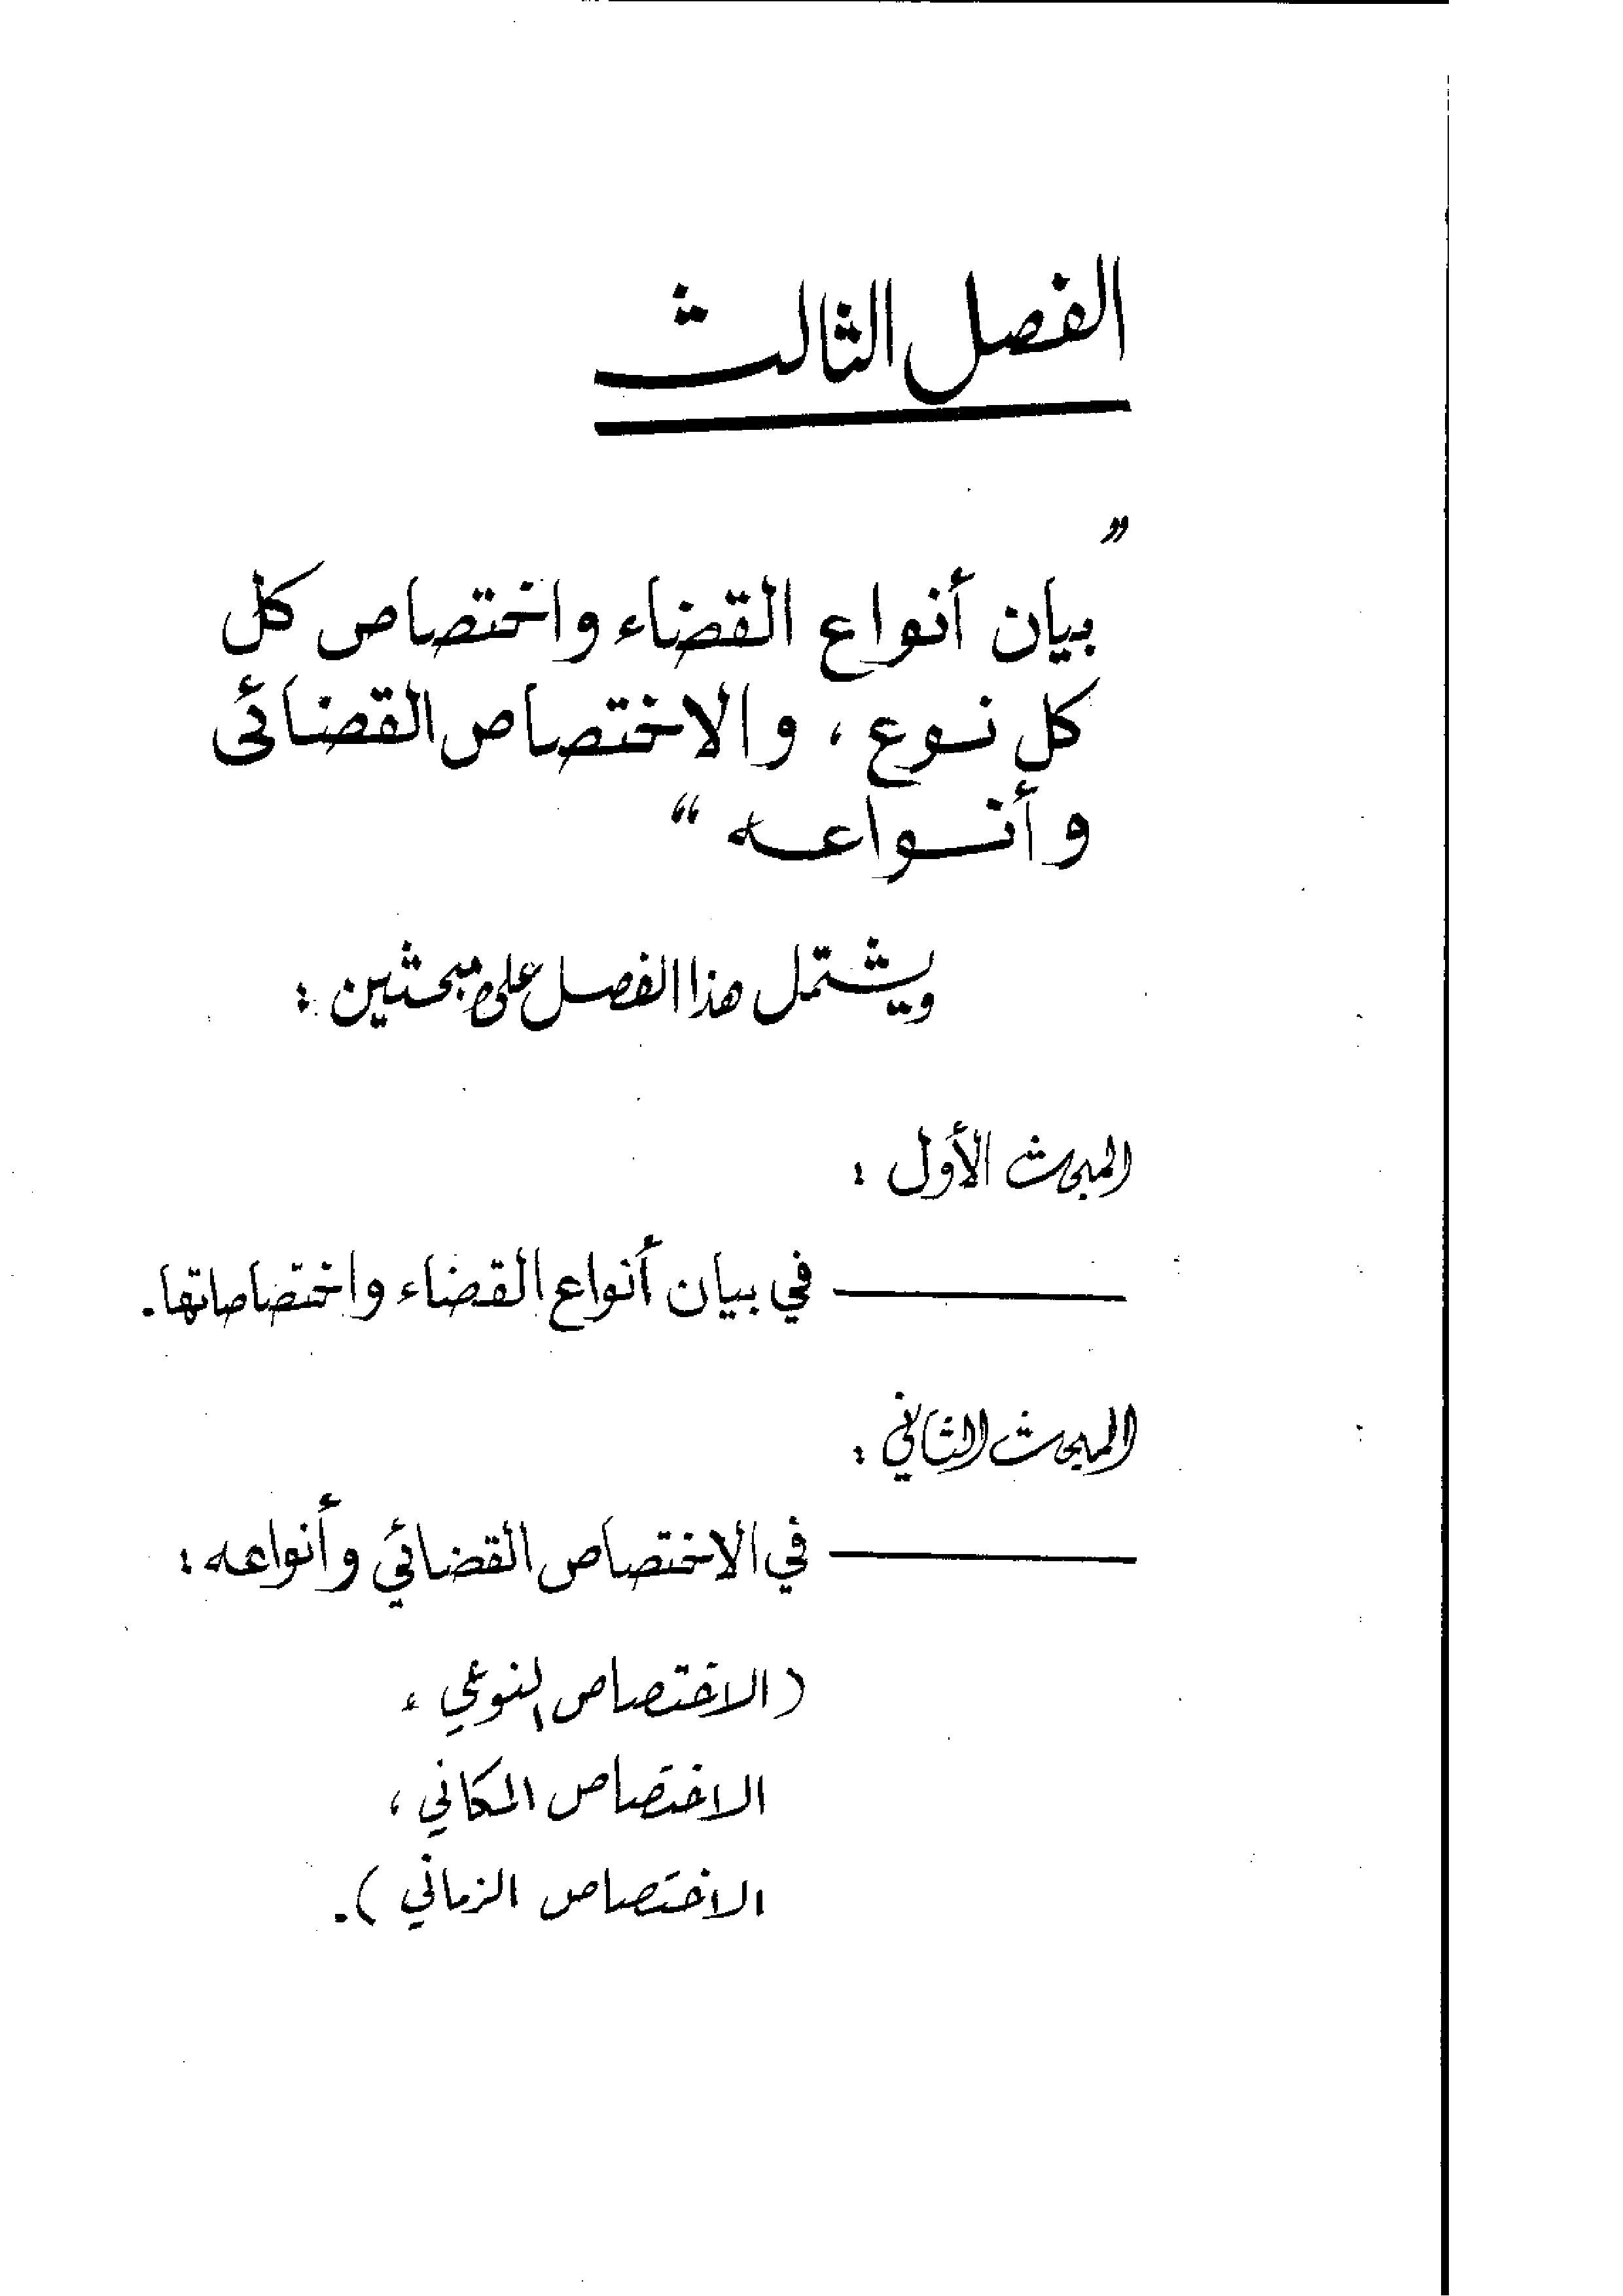 الفصل الثالث
”
بيان أنواع القضاء واختصاص كل
كل نوع ، والاختصاص القضائى
وأنواعه “
ويشتمل هذا الفصل على مبحثين :
المبحث الأول :
في بيان أنواع القضاء واختصاصاتها.
المبحث الثاني :
في الاختصاص القضائي وأنواعه :
( الاختصاص النوعي ،
الاختصاص المكاني ،
الاختصاص الزماني ).